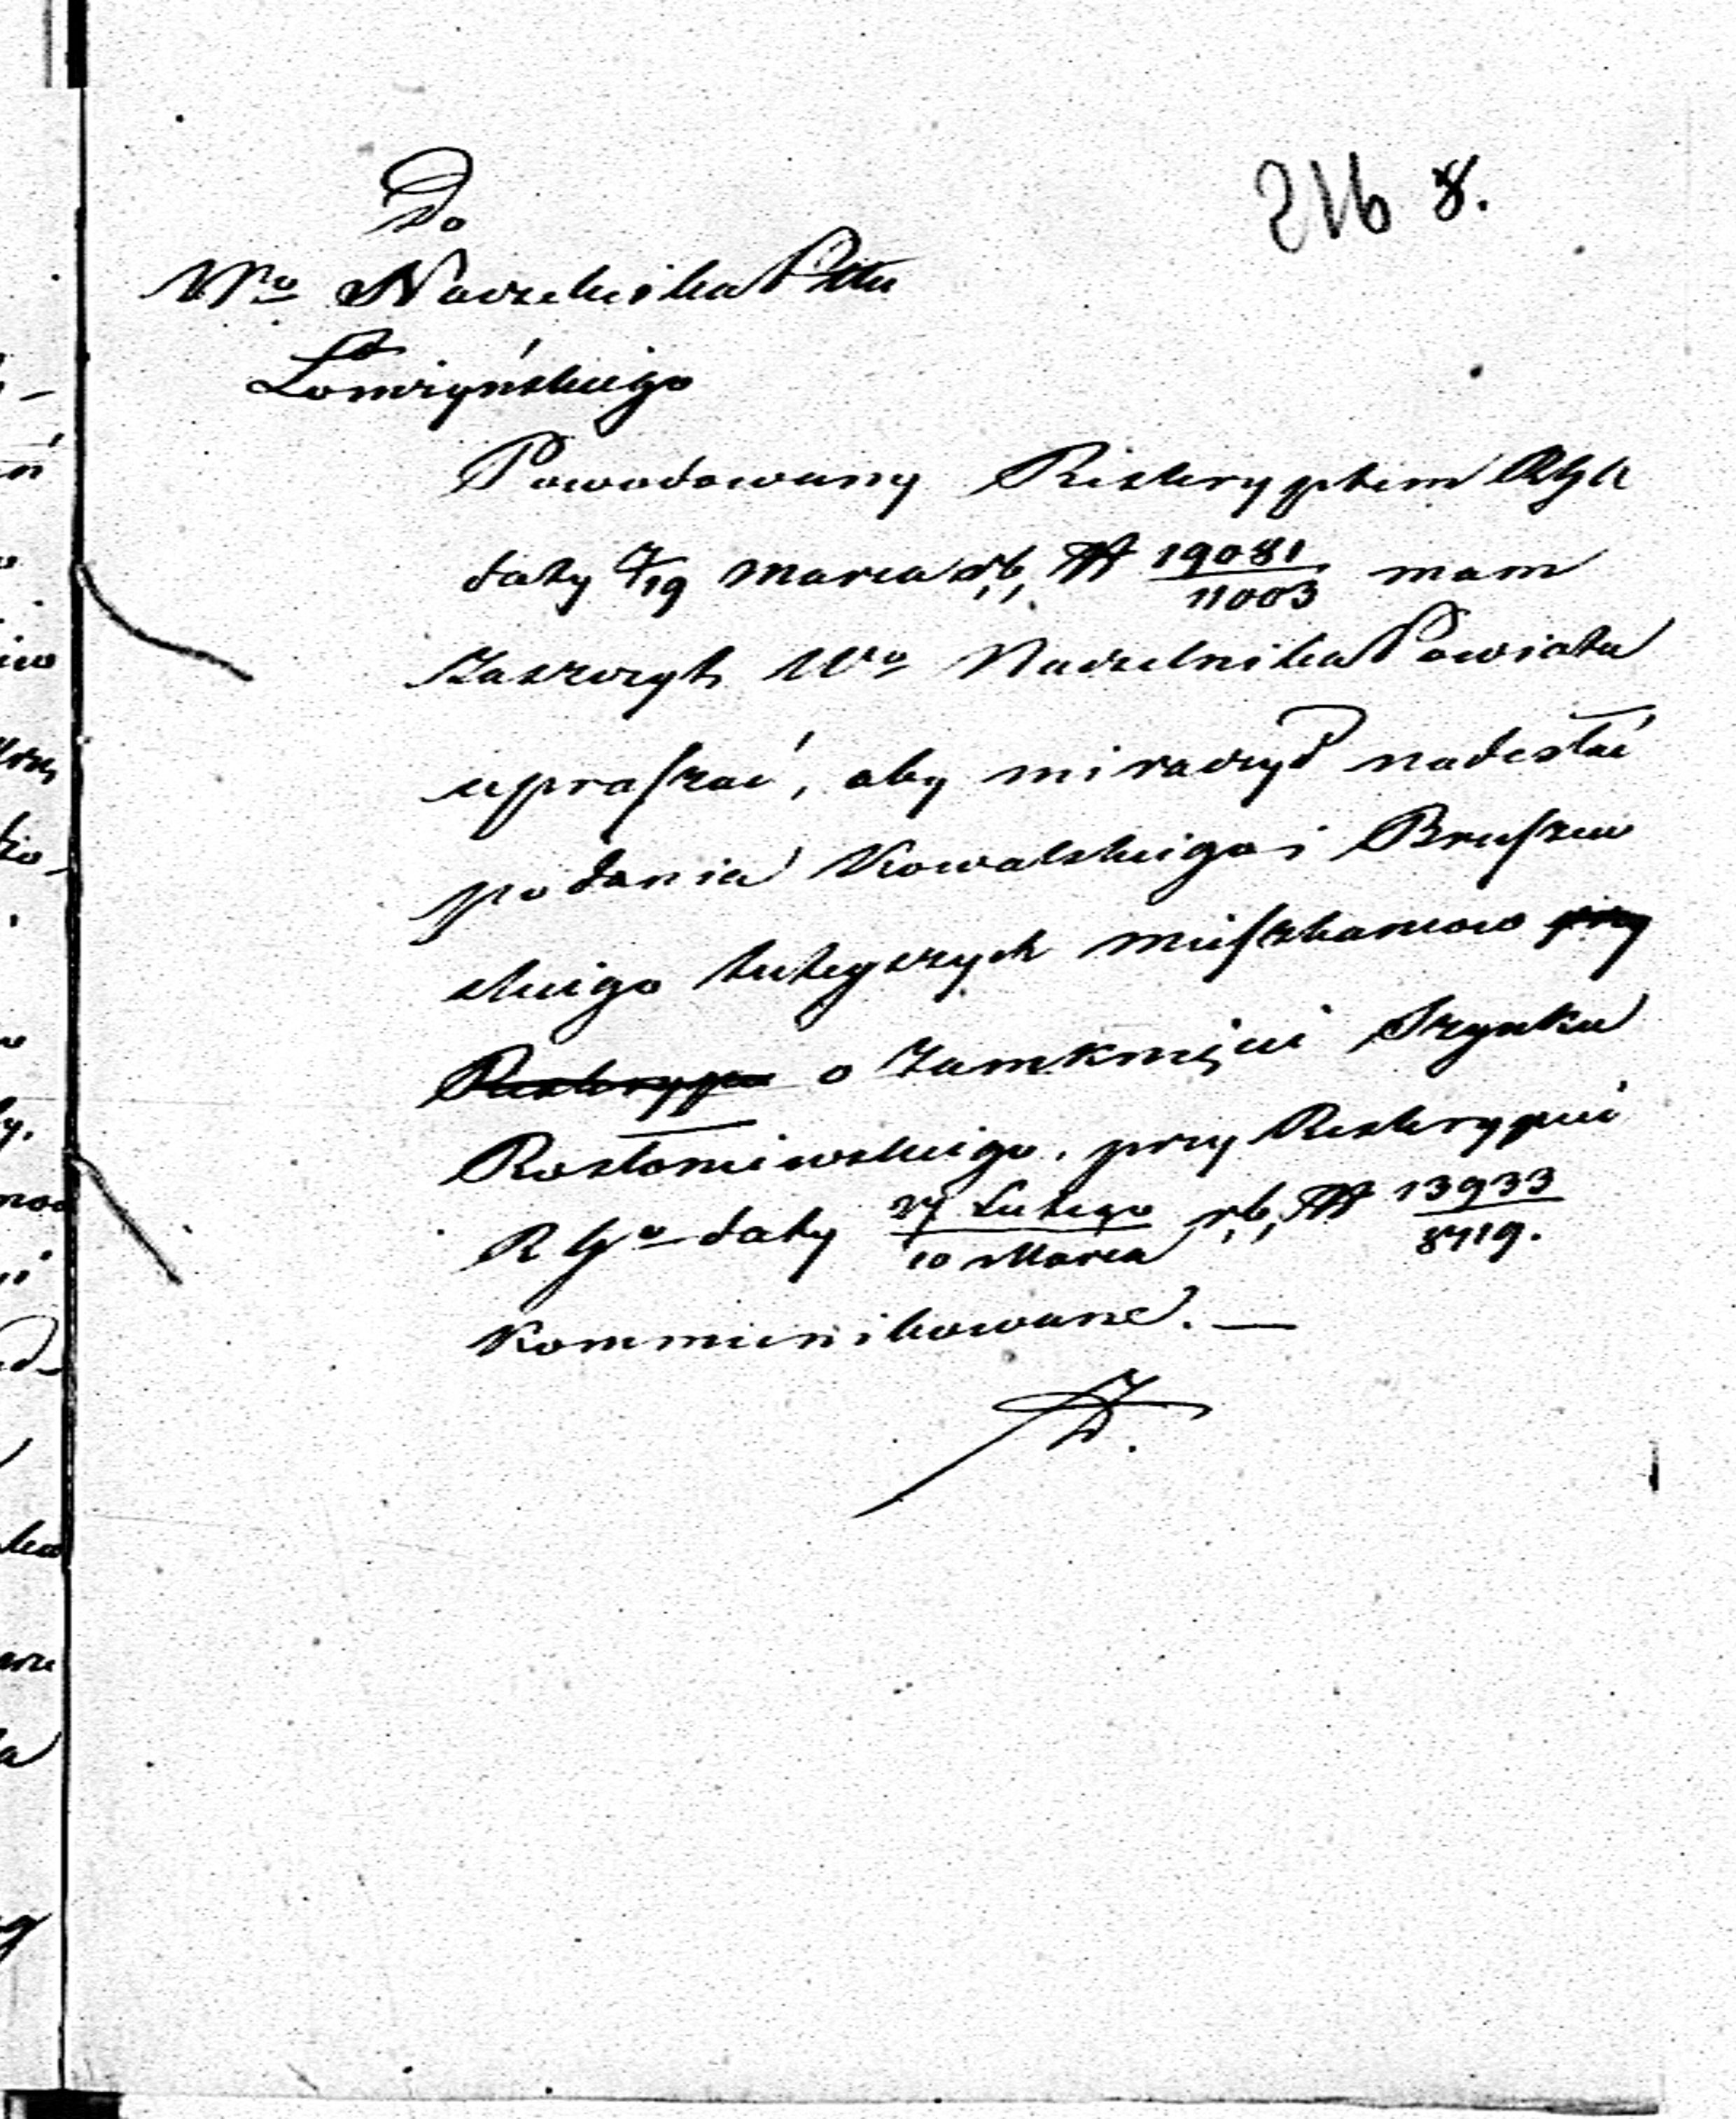 216 8.
Do
Wo Naczelnika Pttu
Łomżyńskiego
Powodowany Reskryptem RGu
daty 7/19 Marca r.b. N 19081/11003 mam
Zaszczyt Wo Naczelnika Powiatu
upraszać, aby mi raczył nadesłać
podania Kowalskiego i Brusze
skiego tutejszych mieszkancow przy
Reskryp o Zamknięcie Szynku
Rosłoniewskiego. przy Reskrypcie
R Go daty 27 Lutego/10 Marca r.b. N 13933/8719.
Kommunikowane. —